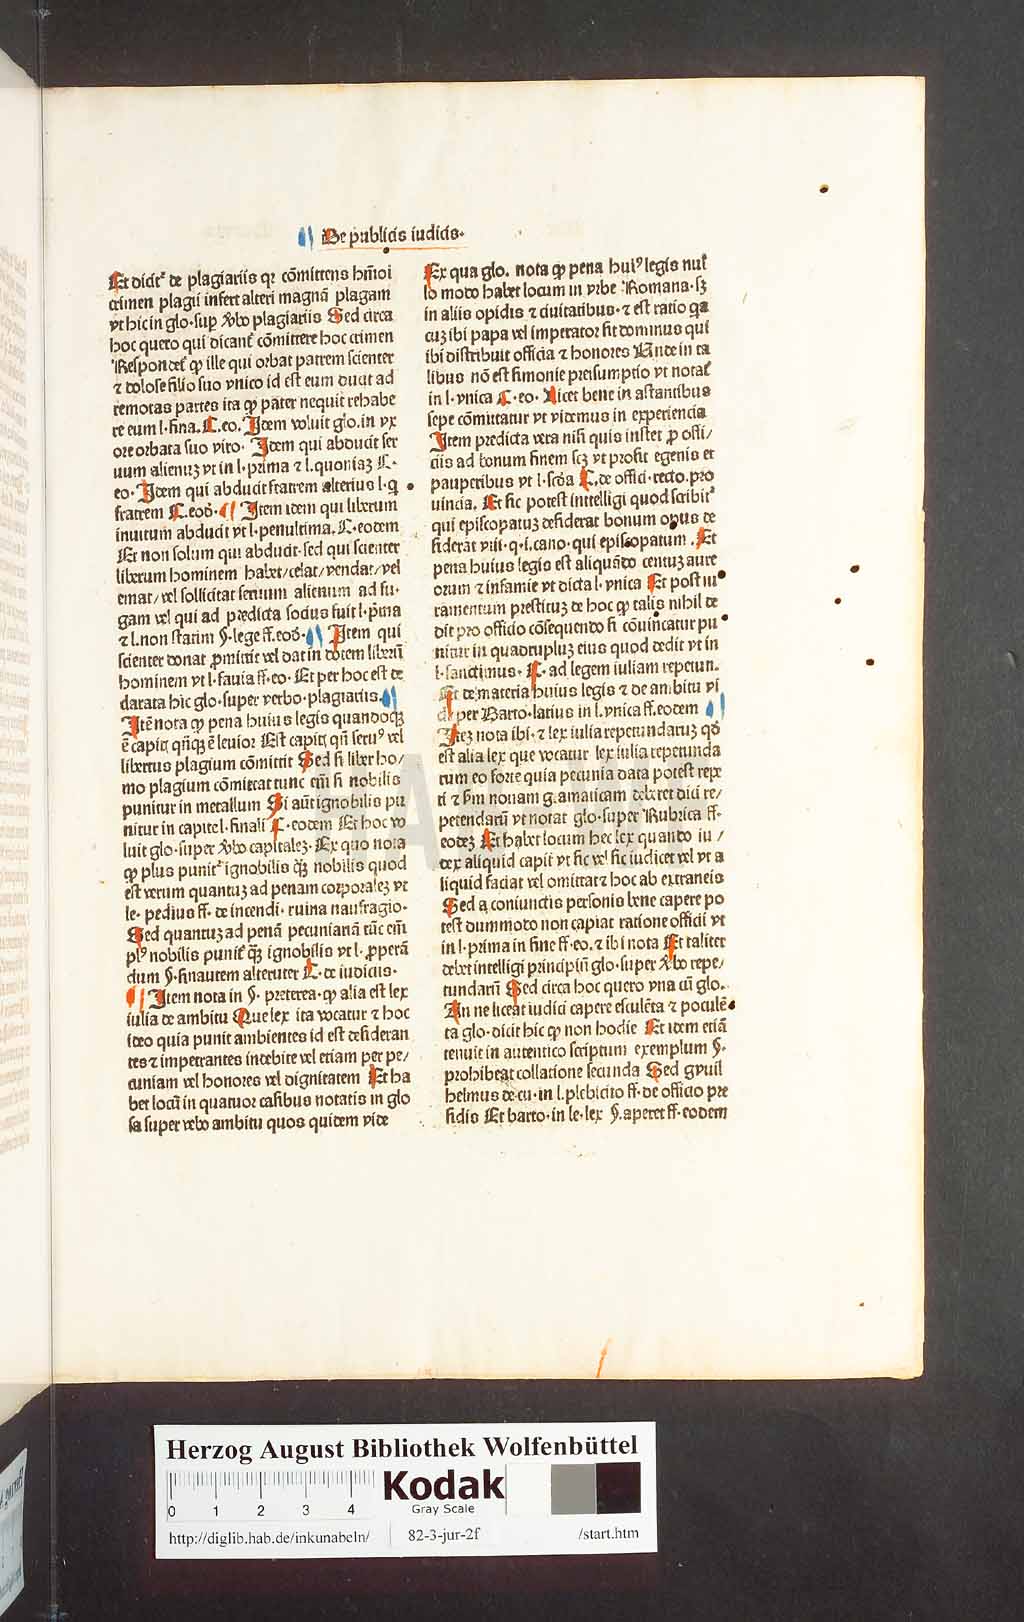 De publicis iudicis.
Et dicit᷒ de plagiariis qꝛ cōmittens hm̄oi
crimen plagii infert alteri magnā plagam
vt hic in glo. sup ꝟbo plagiariis Sed circa
hoc quero qui dicant᷒ cōmittere hoc crimen
Respondet᷒ ꝙ ille qui orbat patrem scienter
⁊ dolose filio suo vnico id est eum ducit ad
remotas partes ita ꝙ pater nequit rehabe
re eum l. fina. C. eo. Item voluit glo. in vx
ore orbata suo viro. Item qui abducit ser
uum alienuꝫ vt in l. prima ⁊ l. quoniaꝫ C.
eo. Item qui abducit fratrem alterius l. q
fratrem C. eoꝺ. Item idem qui liberum
inuitum abducit vt l. penultima. C. eodem
Et non solum qui abducit. sed qui scienter
liberum hominem habet/celat/vendat/vel
emat/vel sollicitat seruum alienum ad fu-
gam vel qui ad predicta socius fuit l. pͥma
⁊ l. non statim §. lege ff. eoꝺ. Item qui
scienter donat ꝓmittit vel dat in dotem liberū
hominem vt l. fauia ff. eo. Et per hoc est de
clarata hic glo. super verbo. plagiariis.
Itē nota ꝙ pena huius legis quandoqꝫ
ē capitꝭ qn̄qꝫ ē leuior Est capitꝭ qn̄ seruꝰ vel
libertus plagium cōmittit Sed si liber ho/
mo plagium cōmittat tunc em̄ si nobilis
punitur in metallum Si aūt ignobilis pu
nitur in capite l. finali C. eodem Et hoc vo
luit glo. super ꝟbo capitaleꝫ. Ex quo nota
ꝙ plus punit᷒ ignobilis qꝫ̄ nobilis quod
est verum quantuꝫ ad penam corporaleꝫ vt
le. pedius ff. de incendi. ruina naufragio.
Sed quantuꝫ ad penā pecuniariā tūc em̄
plꝰ nobilis punit᷒ qꝫ̄ ignobilis vt l. ꝓperā
dum §. sinautem alteruter C. de iudiciis.
Item nota in §. preterea. ꝙ alia est lex
iulia de ambitu Que lex ita vocatur ⁊ hoc
ideo quia punit ambientes id est desideran
tes ⁊ impetrantes indebite vel etiam per pe/
cuniam vel honores vel dignitatem Et ha
bet locū in quatuor casibus notatis in glo
sa super vebo ambitu quos quidem vide
Ex qua glo. nota ꝙ pena huiꝰ legis nul
lo modo habet locum in vrbe Romana. sꝫ
in aliis opidis ⁊ ciuitatibus. ⁊ est ratio qa
cuꝫ ibi papa vel imperator sit dominus qui
ibi distribuit officia ⁊ honores Vnde in ta
libus nō est simonie presumptio vt notat᷒
in l. vnica C. eo. Licet bene in astantibus
sepe cōmittatur vt videmus in experiencia
Item predicta vera nisi quis instet ꝓ offi/
ciis ad bonum finem scꝫ vt prosit egenis et
pauperibus vt l. scꝺa C. de offici. recto. pro
uincia. Et sic potest intelligi quod scibit᷒
qui episcopatuꝫ desiderat bonum opus de
siderat viii. q. i. cano. qui episcopatum. Et
pena huius legis est aliquādo centuꝫ aure
orum ⁊ infamie vt dicta l. vnica Et post iu
ramentum prestituꝫ de hoc ꝙ talis nihil de
dit pro officio cōsequendo si cōuincatur pu
nitur in quadrupluꝫ eius quod dedit vt in
l. sanctimus. C. ad legem iuliam repetun.
Et de materia huius legis ⁊ de ambitu vi
de per Barto. latius in l. vnica ff. eodem
Iteꝫ nota ibi. ⁊ lex iulia repetundaruꝫ qꝺ
est alia lex que vocatur lex iulia repetunda
rum eo forte quia pecunia data potest repe
ti ⁊ ẜm nouam g.amaticam deberet dici re/
petendarū vt notat glo. super Rubrica ff.
eodeꝫ Et habet locum hec lex quando iu/
dex aliquid capit vt sic vel sic iudicet vel vt a
liquid faciat vel omittat ⁊ hoc ab extraneis
Sed a coniunctis personis bene capere po
test dummodo non capiat ratione officii vt
in l. prima in fine ff. eo. ⁊ ibi nota Et taliter
debet intelligi principiū glo. super ꝟbo repe/
tundarū Sed circa hoc quero vna cū glo.
An ne liceat iudici capere esculēta ⁊ poculē
ta glo. dicit hic ꝙ non hodie Et idem etiā
tenuit in autentico scriptum exemplum §.
prohibeat collatione secunda Sed gwil
helmus de cu. in l. plebicito ff. de officio pre
sidis Et barto. in le. lex §. aperet ff. eodem
HAB-WF
Herzog August Bibliothek Wolfenbüttel
0 1 2 3 4
Kodak
Gray Scale
http://diglib.hab.de/inkunabeln/ 82-3-jur-2f /start.htm